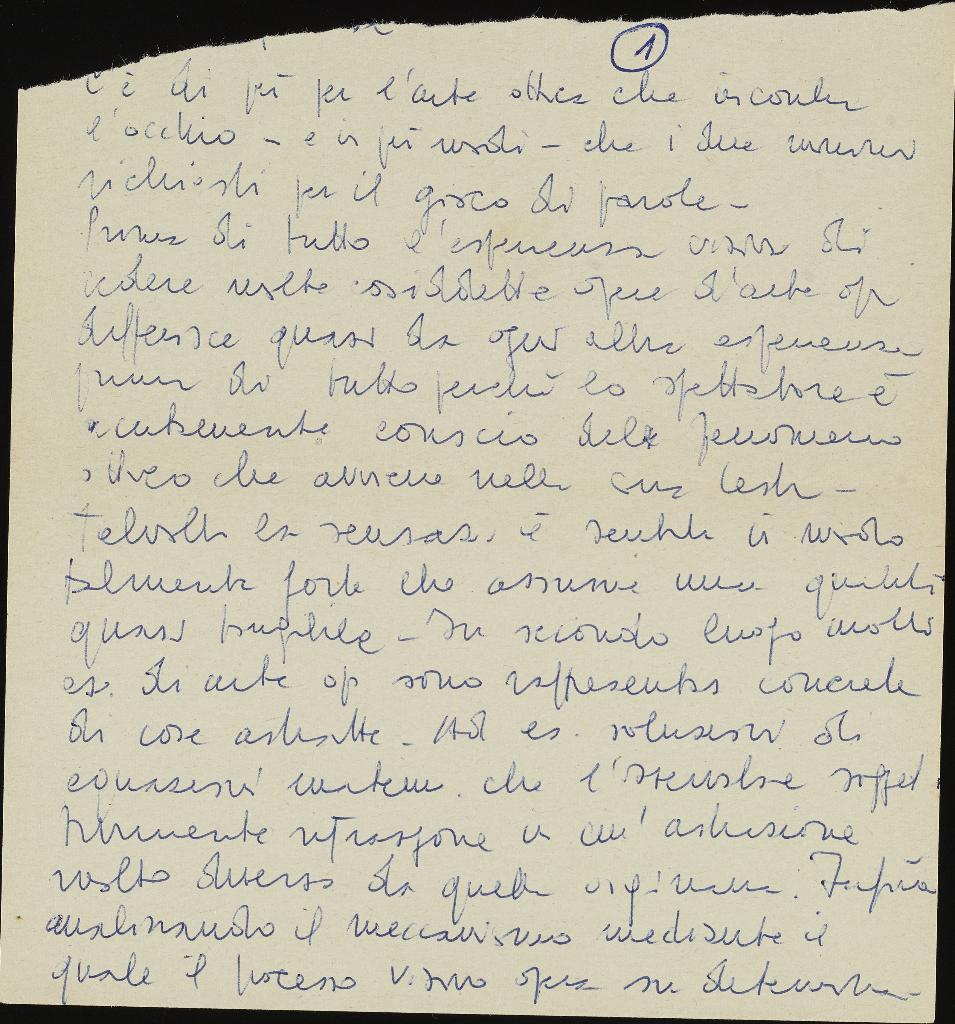 1
c'è di più per l'arte ottica che incontra
l'occhio - e in più modi - che i due numeri
richiesti per il gioco di parole -
Prima di tutto l'esperienza visiva di
vedere molte cosiddette opere d'arte op
differisce quasi da ogni altra esperienza
prima di tutto perché lo spettatore è
acutamente conscio del fenomeno
ottico che avviene nella sua testa -
Talvolta la sensaz. è sentita in modo
talmente forte che assume una qualità
quasi tangibile - In secondo luogo molti
es. di arte op sono rappresentaz concrete
di cose astratte - Ad es. soluzioni di
equazioni matem. che l'osservatore sogget
tivamente ritraspone in un'astrazione
molto diversa da quella originaria. Infine
analizzando il meccanismo mediante il
quale il processo visivo opera su determina-